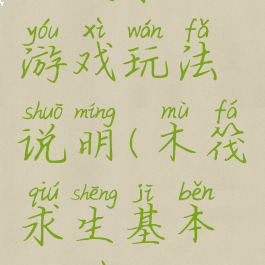 yóu xì wán fǎ
游戏玩法
shuō míng mù fá
说明(木筏
qiú shēng jī běn
求生基本